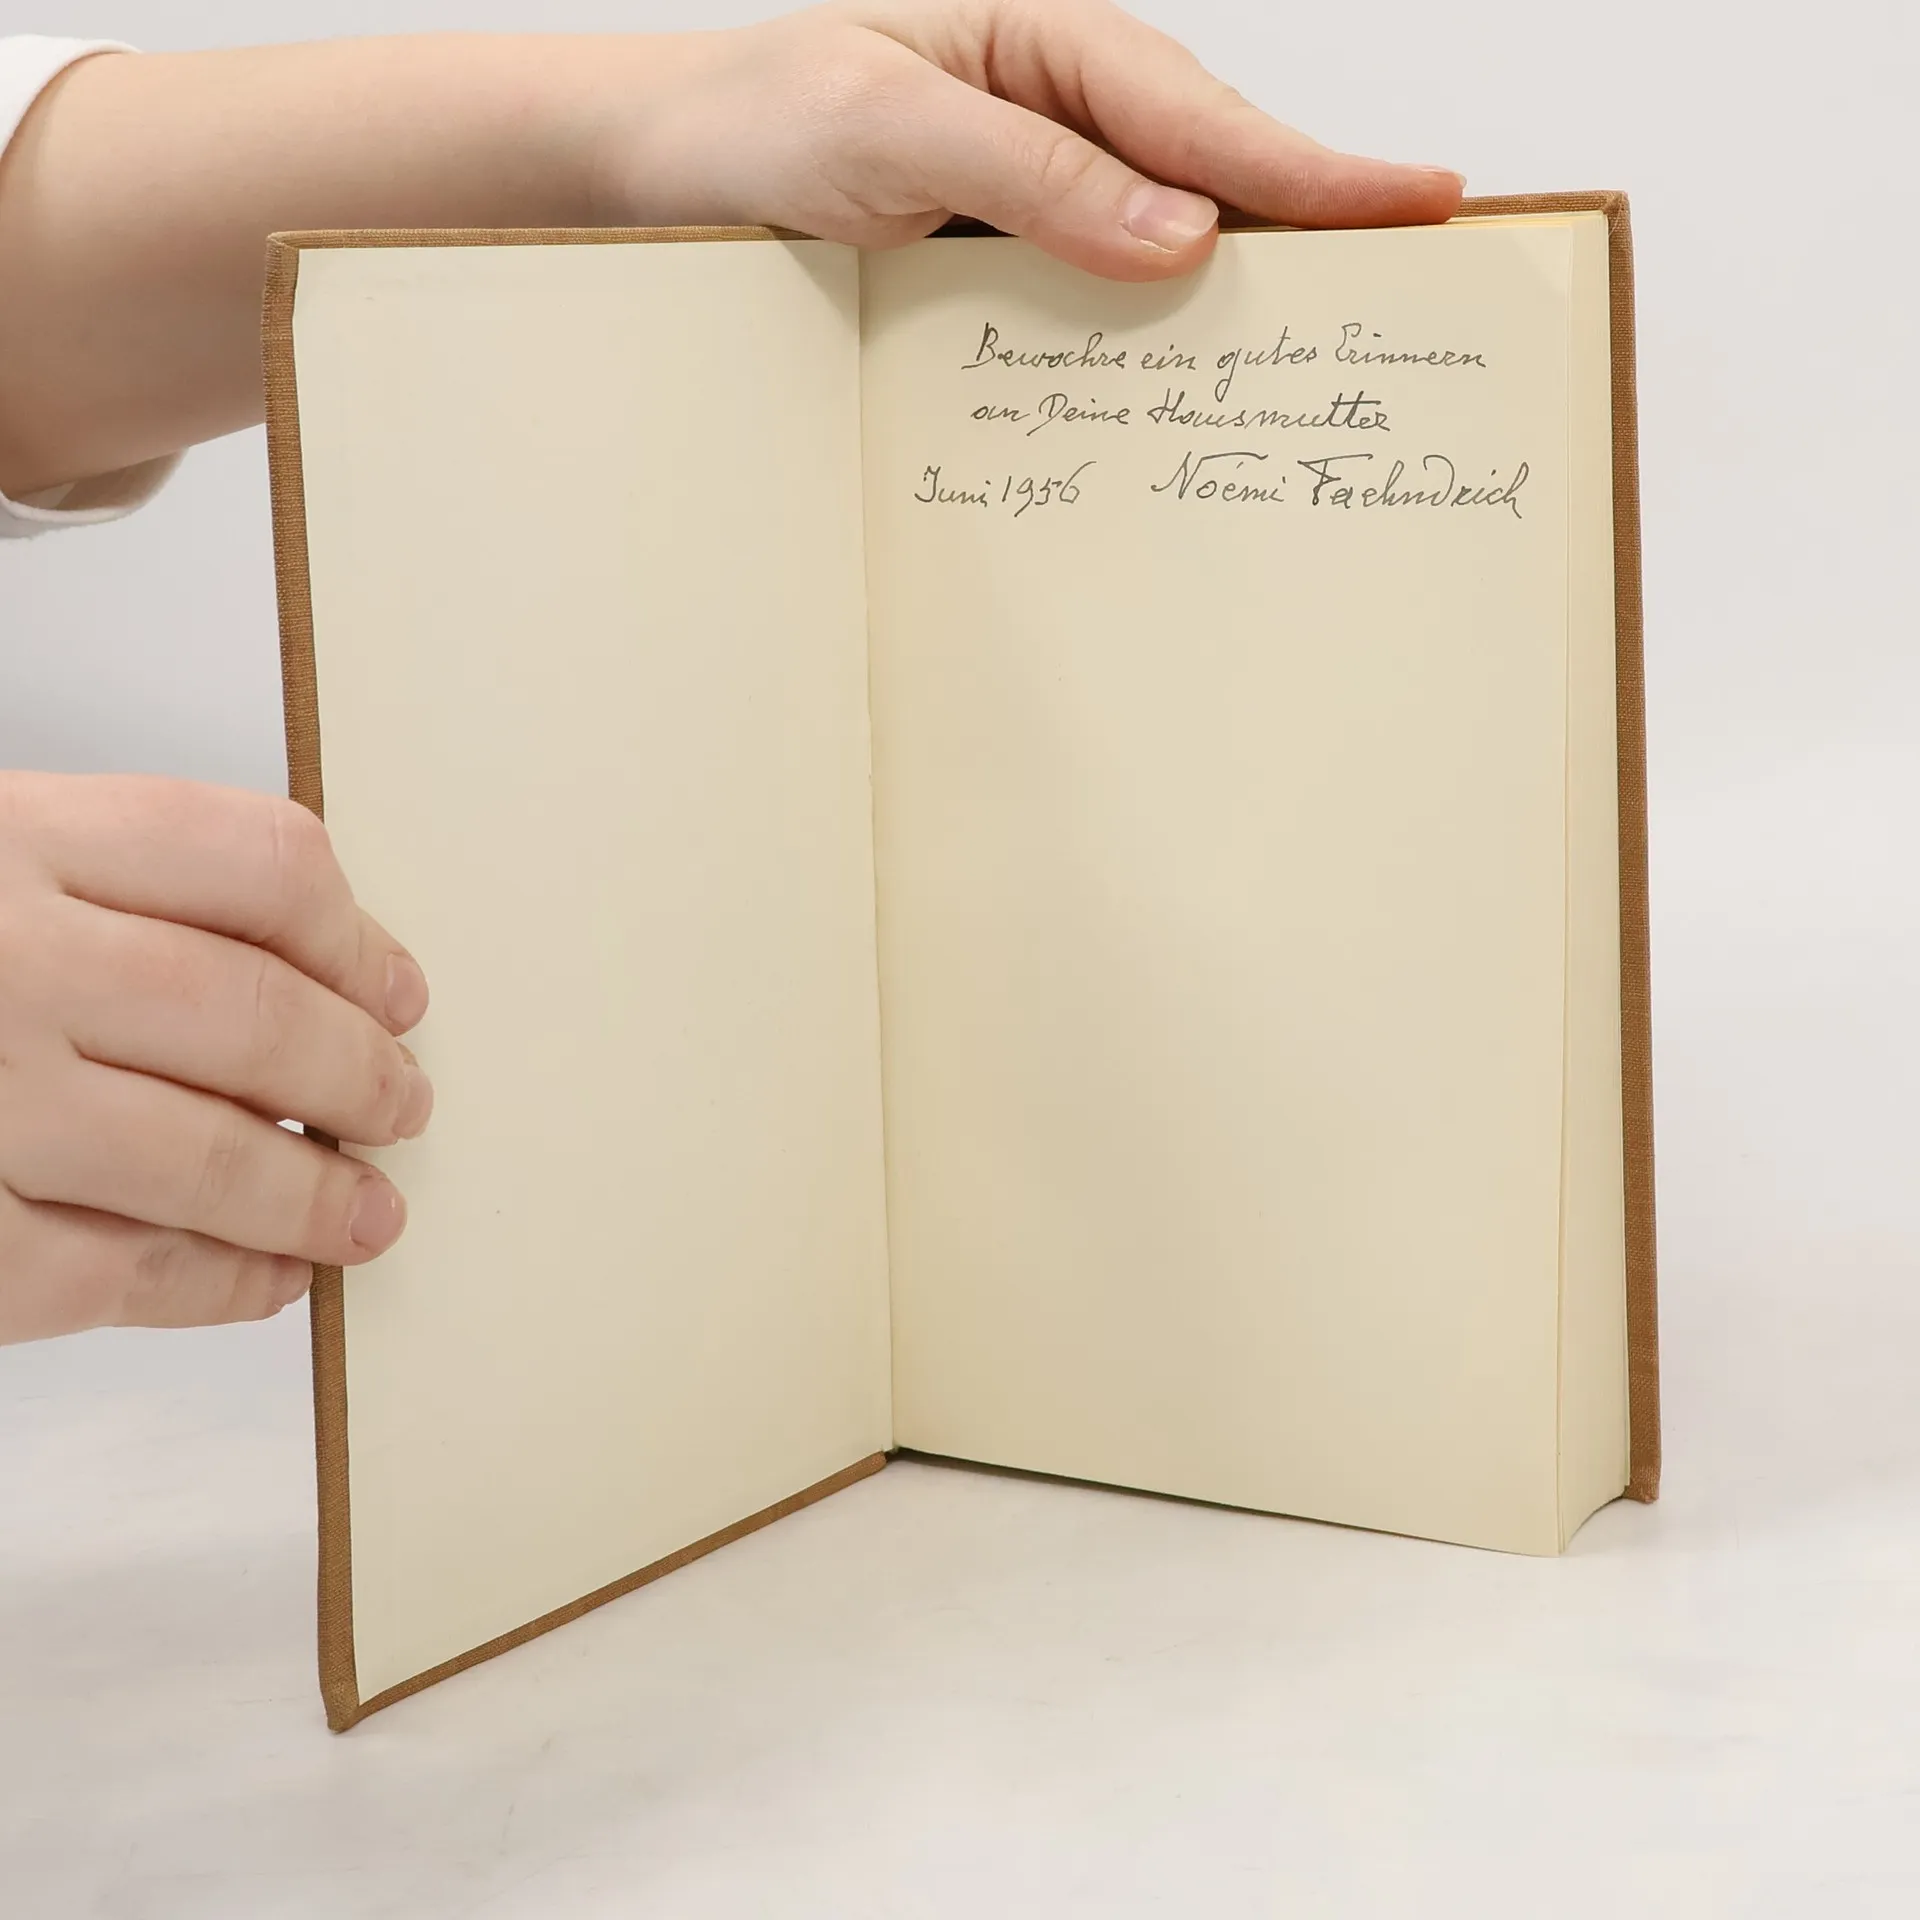 Bewahre ein gutes Erinnern
an Deine Hausmutter
Juni 1956 Noémi Faehndrich